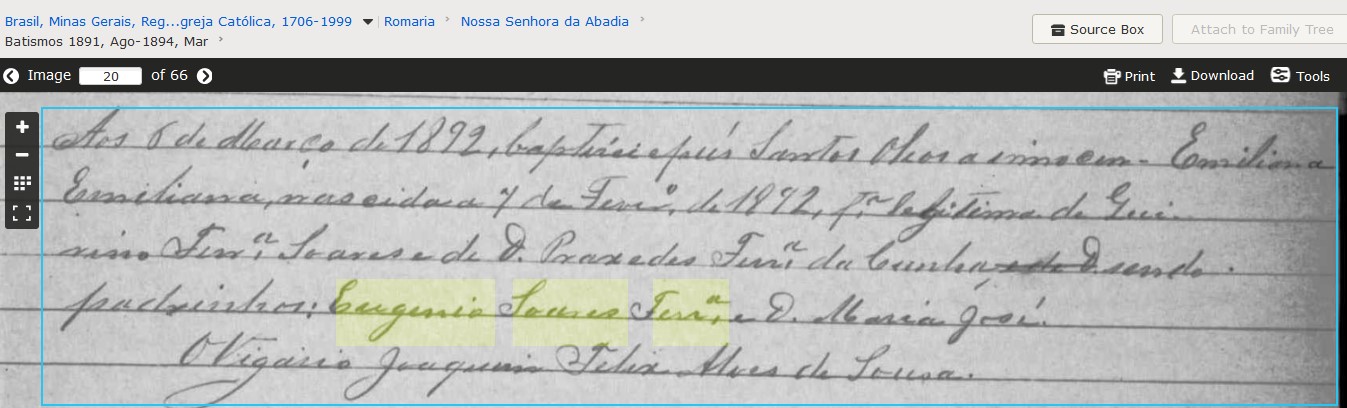 Brasil, Minas Gerais, Reg...greja Católica, 1706-1999 Romaria Nossa Senhora da Abadia
Batismos 1891, Ago-1894, Mar
Source Box
Attach to Family Tree
Image 20 of 66
Print Download Tools
Aos 6 de Março de 1892, baptisei e puz Santos Oleos a innocen- Emiliana
Emiliana, nascida a 7 de Fevr.o, de 1892, f.a legitima de Gui-
rino Ferr.a Soares e de D. Praxedes Ferr.a da Cunha D. sendo
padrinhos: Eugenio Soares Ferr.a, e D. Maria José.
O Vigario Joaquim Felix Alves de Sousa.